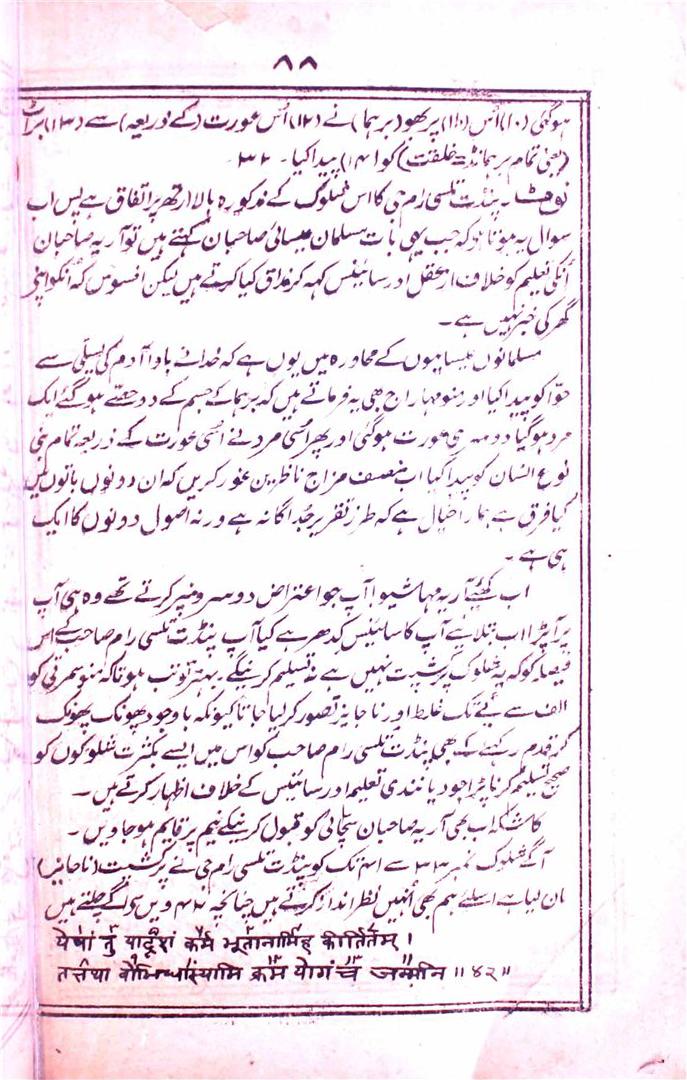 ۸۸
ہوگئی (۱۰) اُس (۱۱) پربھو (برہما) نے (۱۲) اُس عورت (کے ذریعہ) سے (۱۳) براٹ
(یعنی تمام برہمانڈ = خلقت) کو (۱۴) پیدا کیا۔ ۳۲۔
نوٹ۔ پنڈت تلسی رام جی کا اس شلوک کے مذکورہ بالا ارتھ پر اتفاق ہے پس اب
سوال یہ ہوتا ہے کہ جب یہی بات مسلمان عیسائی صاحبان کہتے ہیں تو آریہ صاحبان
اُنکی تعلیم کو خلاف از عقل اور سائینس کہہ کر مذاق کیا کرتے ہیں لیکن افسوس کہ اُنکو اپنی
گھر کی خبر نہیں ہے۔
مسلمانوں عیسایہوں کے محاورہ میں یوں ہے کہ خدا نے باوا آدم کی پسلی سے
حوّا کو پیدا کیا اور منو مہاراج بھی یہ فرماتے ہیں کہ برہما کے جسم کے دو حصے ہو گئے ایک
مرد ہو گیا دوسری عورت ہو گئی اور پھر اُسی مرد نے اُسی عورت کے ذریعہ تمام بنی
نوع انسان کو پیدا کیا اب منصف مزاج ناظرین غور کریں کہ ان دونوں باتوں میں
کیا فرق ہے ہمارا خیال ہے کہ طرز تقریر جُداگانہ ہے ورنہ اصول دونوں کا ایک
ہی ہے۔
اب کہئے آریہ مہاشیو! آپ جو اعتراض دوسروں پر کرتے تھے وہ ہی آپ
پر آپڑا اب بتلایئے آپ کا سائینس کدھر ہے کیا آپ پنڈت تلسی رام صاحب کے اس
فیصلہ کو کہ یہ شلوک پرکشپت نہیں ہے نہ تسلیم کرینگے۔ بہتر تو تب ہوتا کہ منوسمرتی کو
الف سے یے تک غلط اور ناجایز تصور کر لیا جاتا کیونکہ باوجود پھونک پھونک
کر قدم رکھنے کے بھی پنڈت تلسی رام صاحب کو اس میں ایسے بکثرت شلوکوں کو
صحیح تسلیم کرنا پڑا جو دیانندی تعلیم اور سائینس کے خلاف اظہار کرتے ہیں۔
کاشکہ اب بھی آریہ صاحبان سچائی کو قبول کرنیکے نیم پر قایم ہو جاویں۔
آگے شلوک نمبر ۳۳ سے ۴۱ تک کو پنڈت تلسی رام جی نے پرکشپت (ناجایز)
مان لیا ہے اسلئے ہم بھی اُنہیں نظر انداز کرتے ہیں چنانچہ ۴۲ ویں سے آگے چلتے ہیں
येषां तु यादृशं कर्म भूतानामिह कीर्तितम् ।
तत्तथा वोभिधास्यामि क्रम योगं च जन्मनि ॥ ४२ ॥